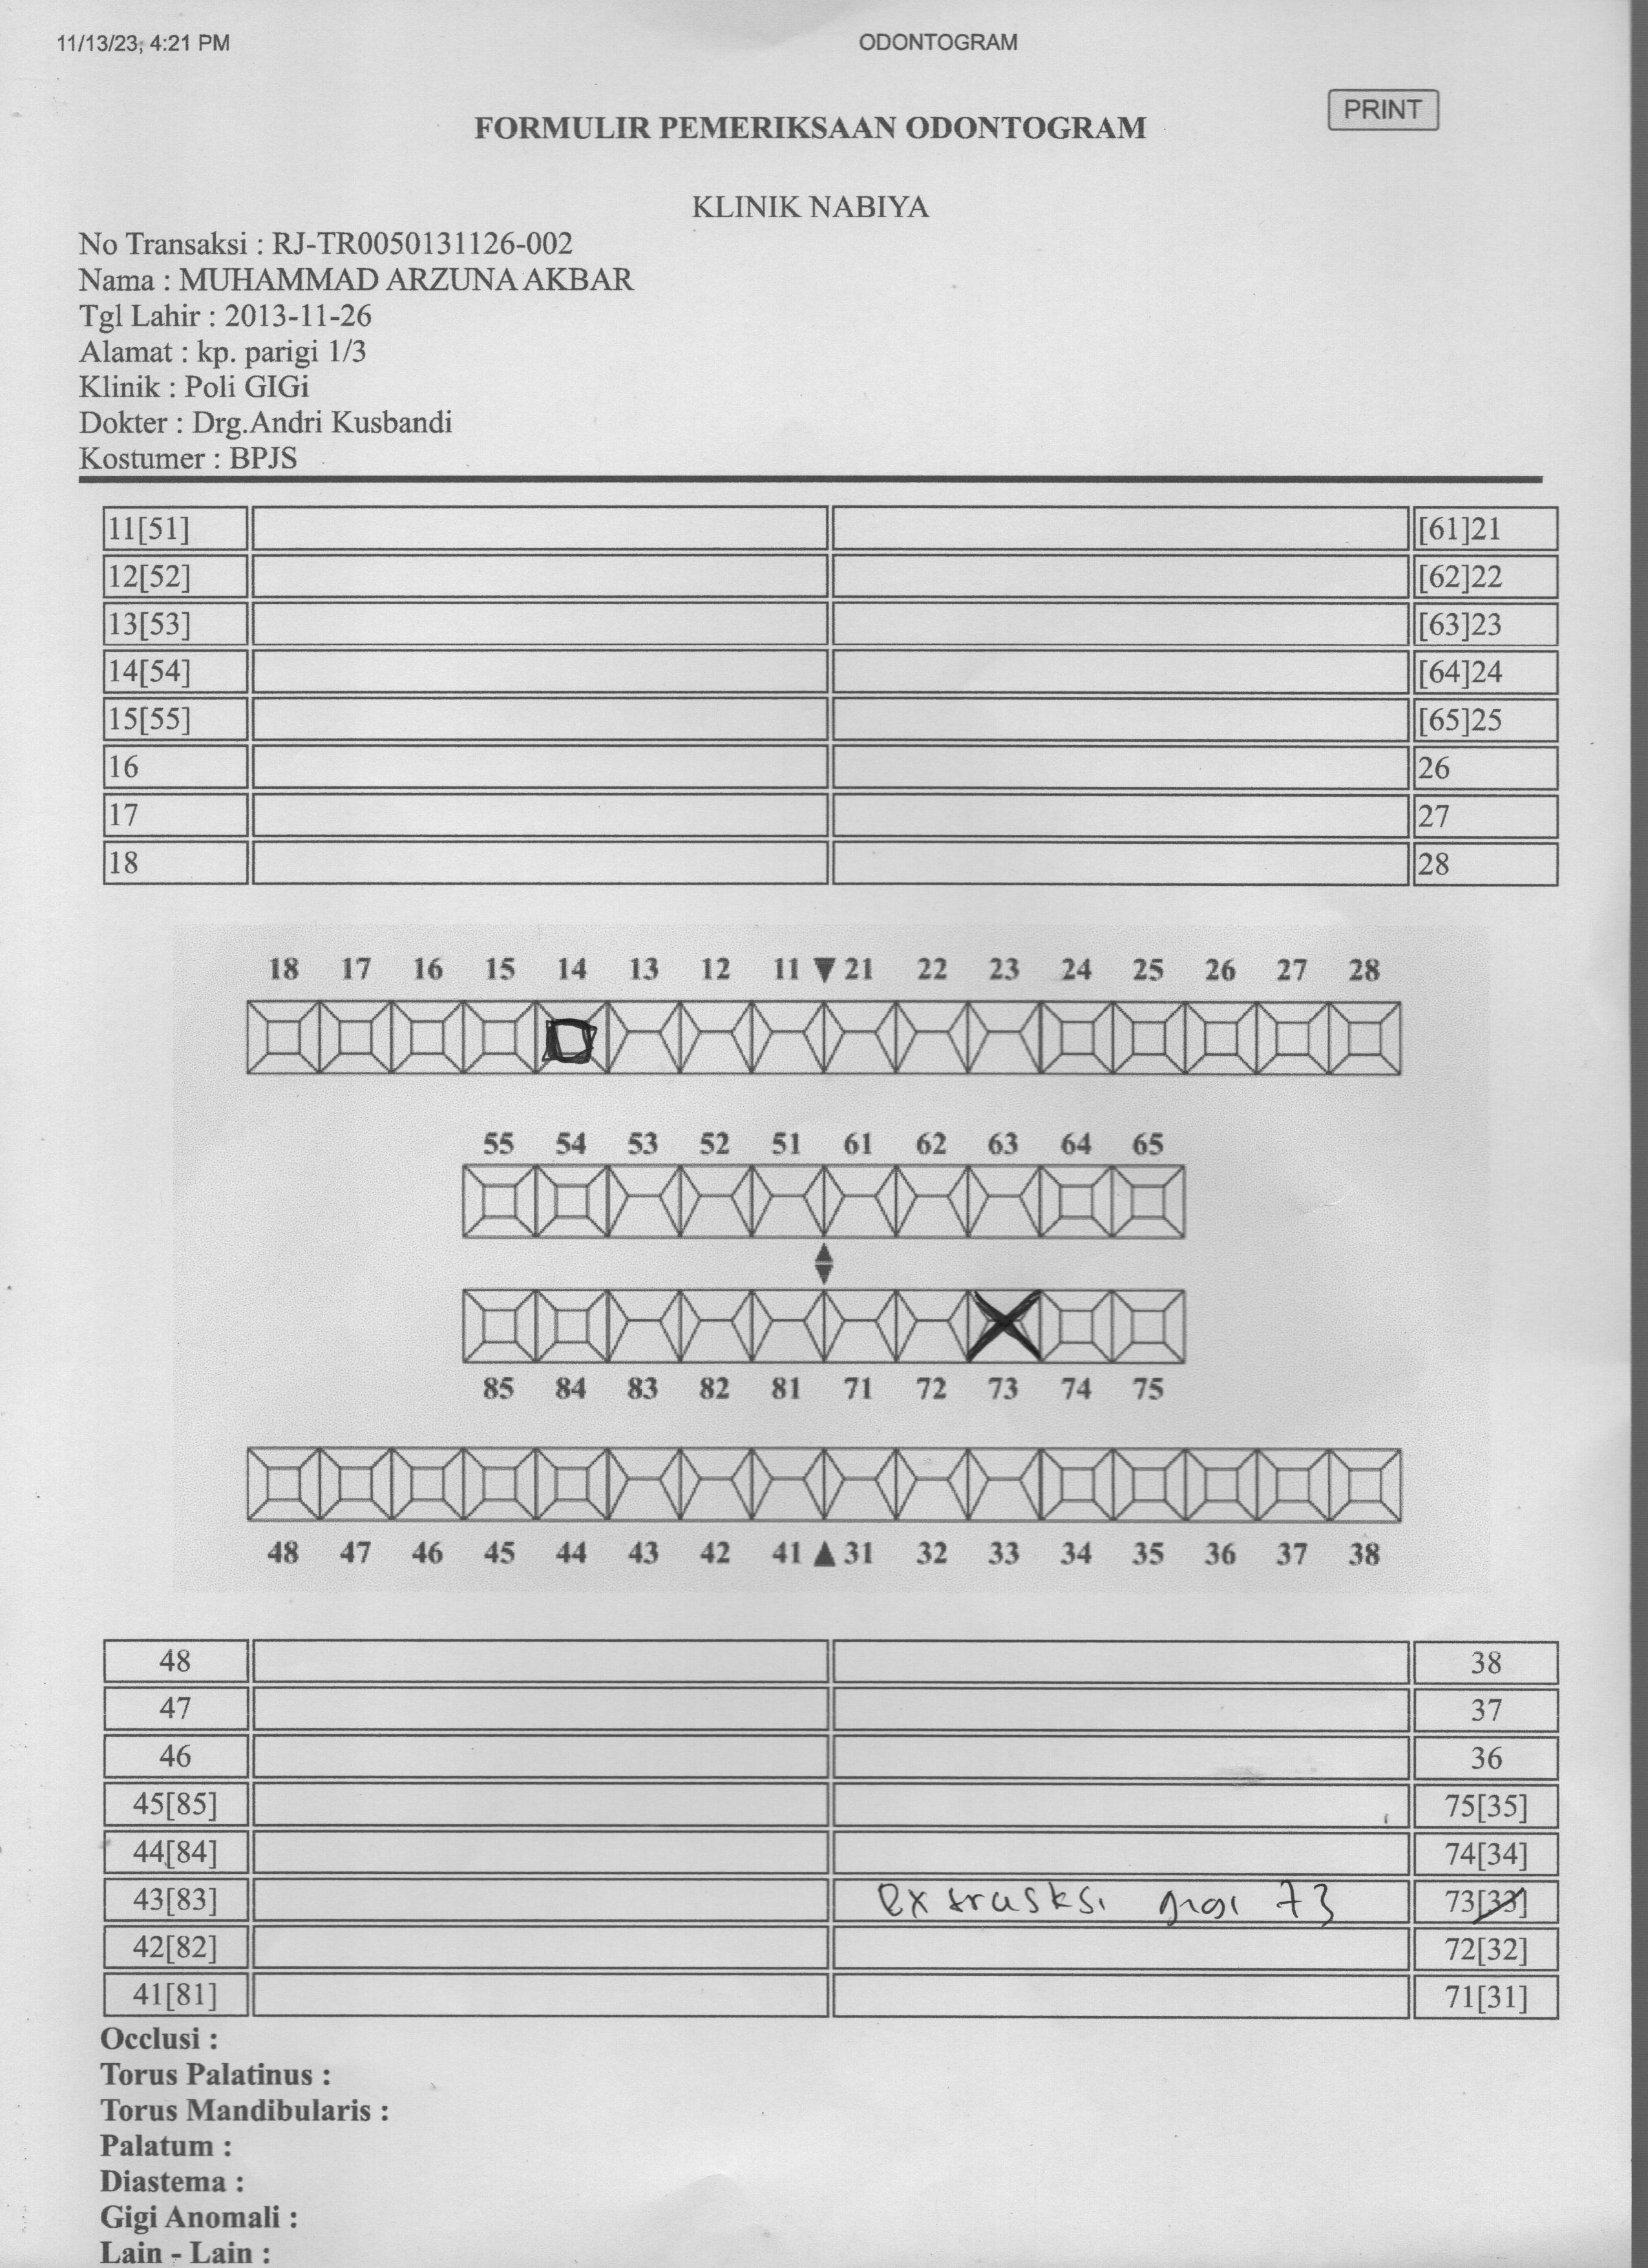 11/13/23, 4:21 PM ODONTOGRAM
PRINT
FORMULIR PEMERIKSAAN ODONTOGRAM
KLINIK NABIYA
No Transaksi : RJ-TR0050131126-002
Nama : MUHAMMAD ARZUNA AKBAR
Tgl Lahir : 2013-11-26
Alamat : kp. parigi 1/3
Klinik : Poli GIGi
Dokter : Drg.Andri Kusbandi
Kostumer : BPJS
11[51] [61]21
12[52] [62]22
13[53] [63]23
14[54] [64]24
15[55] [65]25
16 26
17 27
18 28
18 17 16 15 14 13 12 11 21 22 23 24 25 26 27 28
55 54 53 52 51 61 62 63 64 65
85 84 83 82 81 71 72 73 74 75
48 47 46 45 44 43 42 41 31 32 33 34 35 36 37 38
48 38
47 37
46 36
45[85] 75[35]
44[84] 74[34]
43[83] extrasksi gigi 73 73[33]
42[82] 72[32]
41[81] 71[31]
Occlusi :
Torus Palatinus :
Torus Mandibularis :
Palatum :
Diastema :
Gigi Anomali :
Lain - Lain :